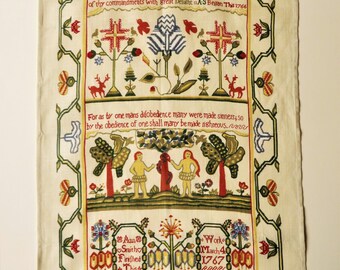 of thy commandments with great
For as by one mans disobedience many were made sinners so
by the obedience of one shall many be made righteous.
Ann
Smith
Finished
This
Work
March 4
1767